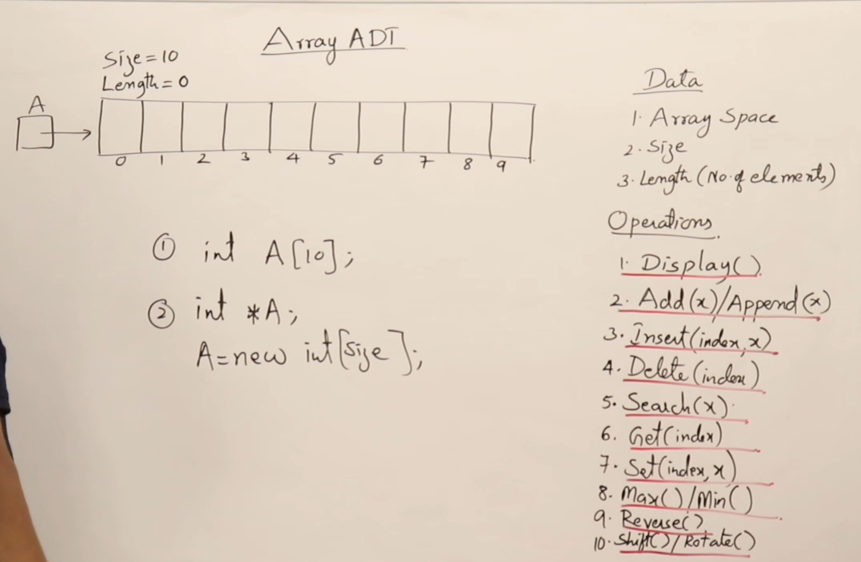 Array ADT
Size=10
Length=0
A
0 1 2 3 4 5 6 7 8 9
① int A[10];
② int *A;
A=new int[Size];
Data
1. Array Space
2. Size
3. Length (No. of elements)
Operations
1. Display()
2. Add(x)/Append(x)
3. Insert(index,x)
4. Delete(index)
5. Search(x)
6. Get(index)
7. Set(index,x)
8. Max()/Min()
9. Reverse()
10. Shift()/Rotate()